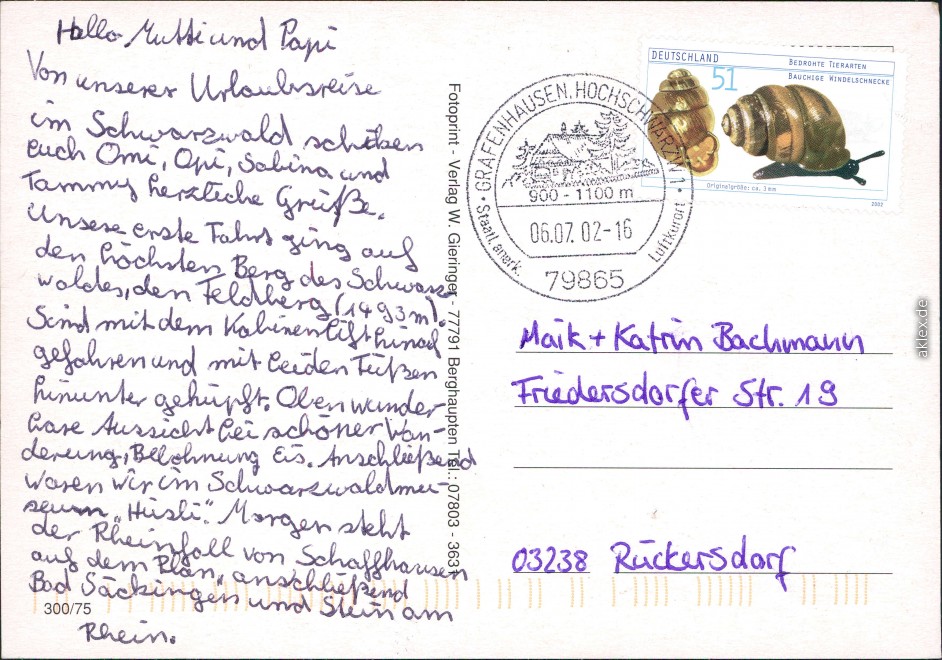 Hallo Mutti und Papi
Von unserer Urlaubsreise
im Schwarzwald schicken
euch Omi, Opi, Sabina und
Tammy herzliche Grüße.
Unsere erste Fahrt ging auf
den höchsten Berg des Schwarz-
waldes, den Feldberg (1493m).
Sind mit dem Kabinenlift hinauf
gefahren und mit beiden Füßen
hinunter gehüpft. Oben wunder-
bare Aussicht bei schöner Wan-
derung, Belohnung Eis. Anschließend
waren wir im Schwarzwaldmu-
seum „Hüsli". Morgen steht
der Rheinfall von Schaffhausen
auf dem Plan, anschließend
Bad Säckingen und Stein am
Rhein.
300/75
Fotoprint - Verlag W. Gieringer - 77791 Berghaupten Tel.: 07803 - 3631
GRAFENHAUSEN, HOCHSCHWARZW 1
900 - 1100 m
06.07.02-16
Staatl. anerk. Luftkurort
79865
DEUTSCHLAND
BEDROHTE TIERARTEN
51
BAUCHIGE WINDELSCHNECKE
Originalgröße: ca. 3 mm
2002
Maik + Katrin Bachmann
Friedersdorfer Str. 19
03238 Rückersdorf
aklex.de